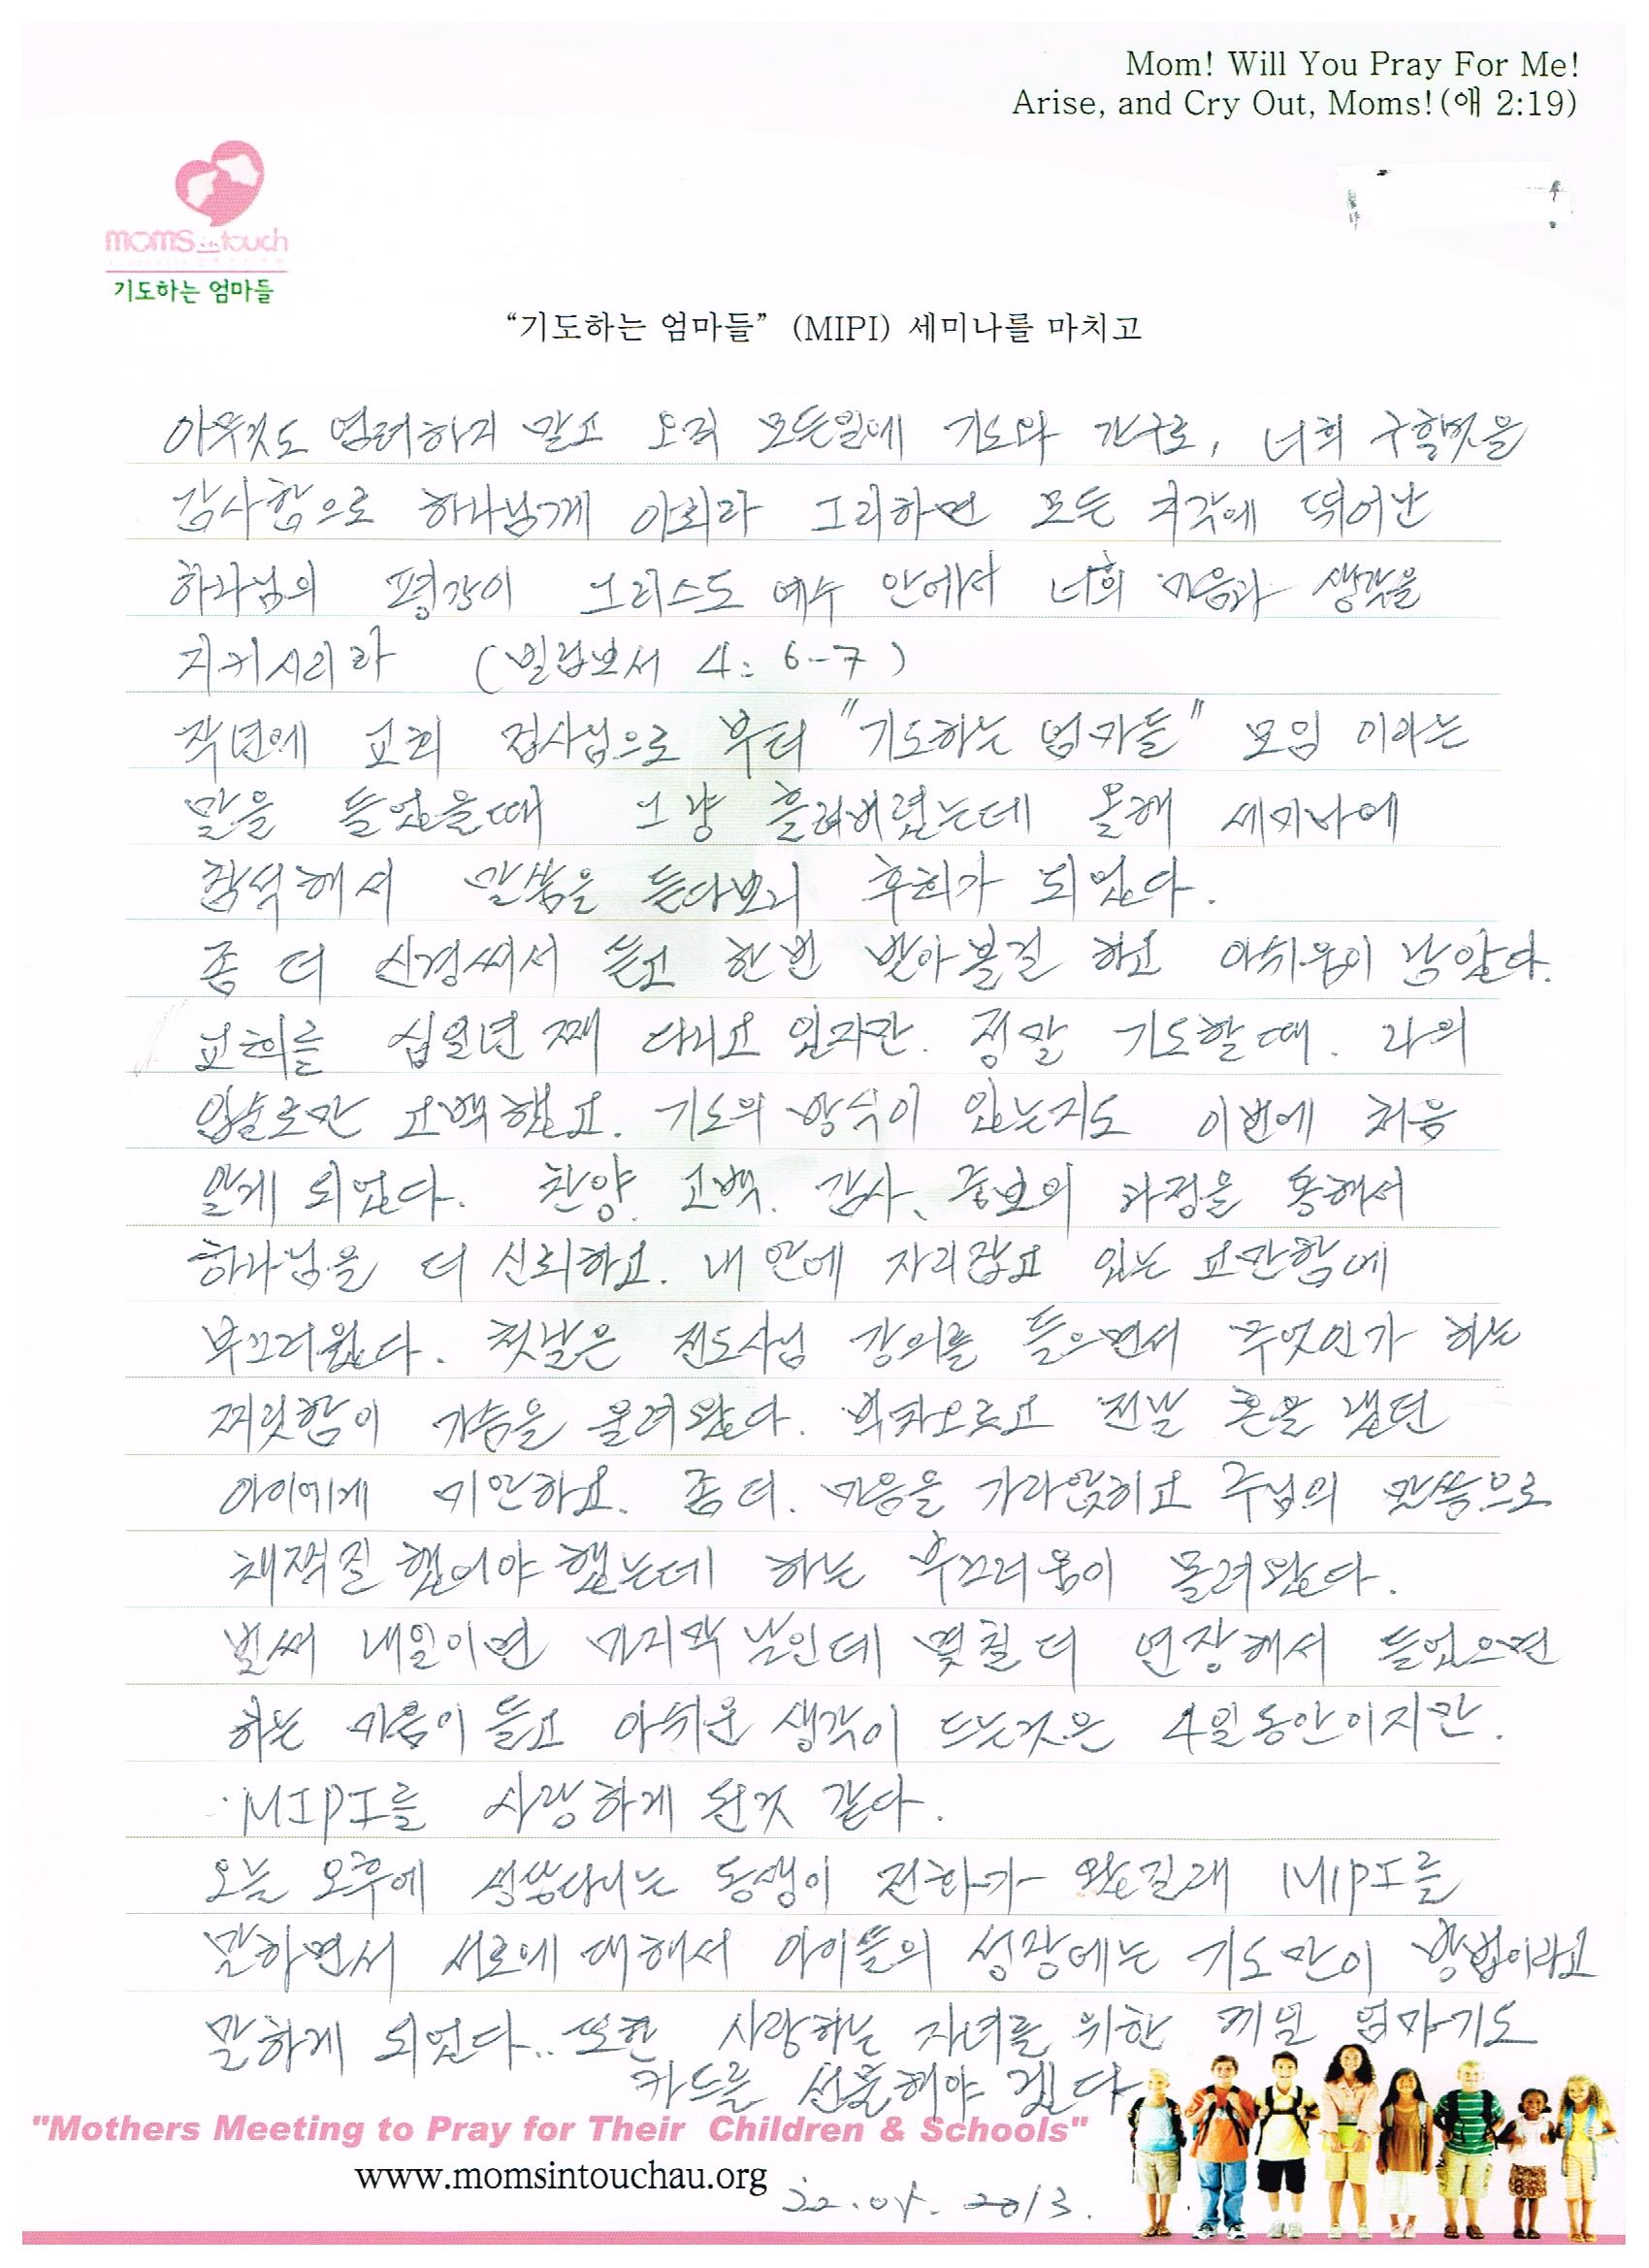 Mom! Will You Pray For Me!
Arise, and Cry Out, Moms!(애 2:19)
moms in touch
기도하는 엄마들
“기도하는 엄마들” (MIPI) 세미나를 마치고
아무것도 염려하지 말고 오직 모든일에 기도와 간구로, 너희 구할것을
감사함으로 하나님께 아뢰라 그리하면 모든 지각에 뛰어난
하나님의 평강이 그리스도 예수 안에서 너희 마음과 생각을
지키시리라 (빌립보서 4: 6-7)
작년에 교회 집사님으로 부터 "기도하는 엄마들" 모임 이라는
말을 들었을때 그냥 흘려버렸는데 올해 세미나에
참석해서 말씀을 듣다보니 후회가 되었다.
좀 더 신경써서 듣고 한번 받아볼걸 하고 아쉬움이 남았다.
교회를 십일년 째 다니고 있지만. 정말 기도할때. 나의
입술로만 고백했고. 기도의 방식이 있는지도 이번에 처음
알게 되었다. 찬양. 고백. 감사、중보의 과정을 통해서
하나님을 더 신뢰하고. 내 안에 자리잡고 있는 교만함에
부끄러웠다. 첫날은 전도사님 강의를 들으면서 무엇인가 하는
찌릿함이 가슴을 울려왔다. 벅차오르고 전날 혼을 냈던
아이에게 미안하고. 좀 더. 마음을 가라앉히고 주님의 말씀으로
채찍질 했어야 했는데 하는 부끄러움이 몰려왔다.
벌써 내일이면 마지막 날인데 몇칠 더 연장해서 들었으면
하는 마음이 들고 아쉬운 생각이 드는것은 4일동안이지만.
MIPI를 사랑하게 된것 같다.
오늘 오후에 성당다니는 동생이 전화가 왔길래 MIPI를
말하면서 서로에 대해서 아이들의 성장에는 기도만이 방법이라고
말하게 되었다.. 또한 사랑하는 자녀를 위한 엄마기도
카드를 선물해야 겠다
"Mothers Meeting to Pray for Their Children & Schools"
www.momsintouchau.org
22.04.2013.